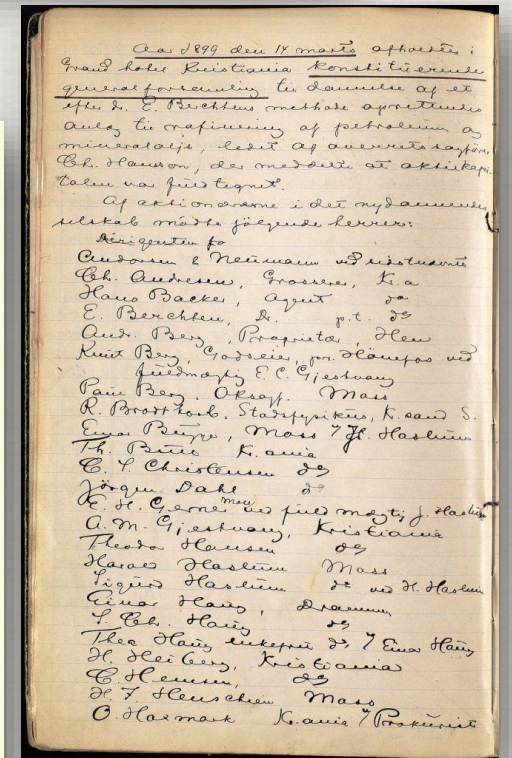 Aar 1899 den 14 marts afholdtes i
Grand hotel Kristiania konstituerende
generalforsamling til dannelse af et
efter dr. E. Berchtens methode oprettendes
anlæg til rafinering af petroleum og
mineralolje, ledet af overretssagfører
Chr. Hanson, der meddelte at aktiekapi-
talen var fuldtegnet.
Af aktionærerne i det nydannede
selskab mødte følgende herrer:
Andorsen & Neumann ved
Chr. Andresen, Grosserer, K.a
Hans Backer, Agent do
E. Berchten, Dr. p.t. do
Andr. Berg, Proprietær, Hen
Knut Berg, Godseier, pr. Hönefos ved
fuldmægtig E. C. Gjestvang
Paul Berg, Oksagf. Moss
R. Brodtkorb, Stadsfysikus, K.sand S.
Einar Bugge, Moss / H. Haslum
Th. Buus K.ania
C. S. Christensen do
Jörgen Dahl do
E. H. Gerner Moss ved fuldmægtig J. Haslum
A. M. Gjestvang, Kristiania
Theodor Hansen do
Harald Haslum Moss
Sigurd Haslum do ved H. Haslum
Einar Haug, Drammen
S. Chr. Haug do
Thea Haug enkefru do / Einar Haug
H. Heiberg, Kristiania
C. Hemsen, do
H. F. Henschien Moss
O. Hasmark K.ania / Prokurist